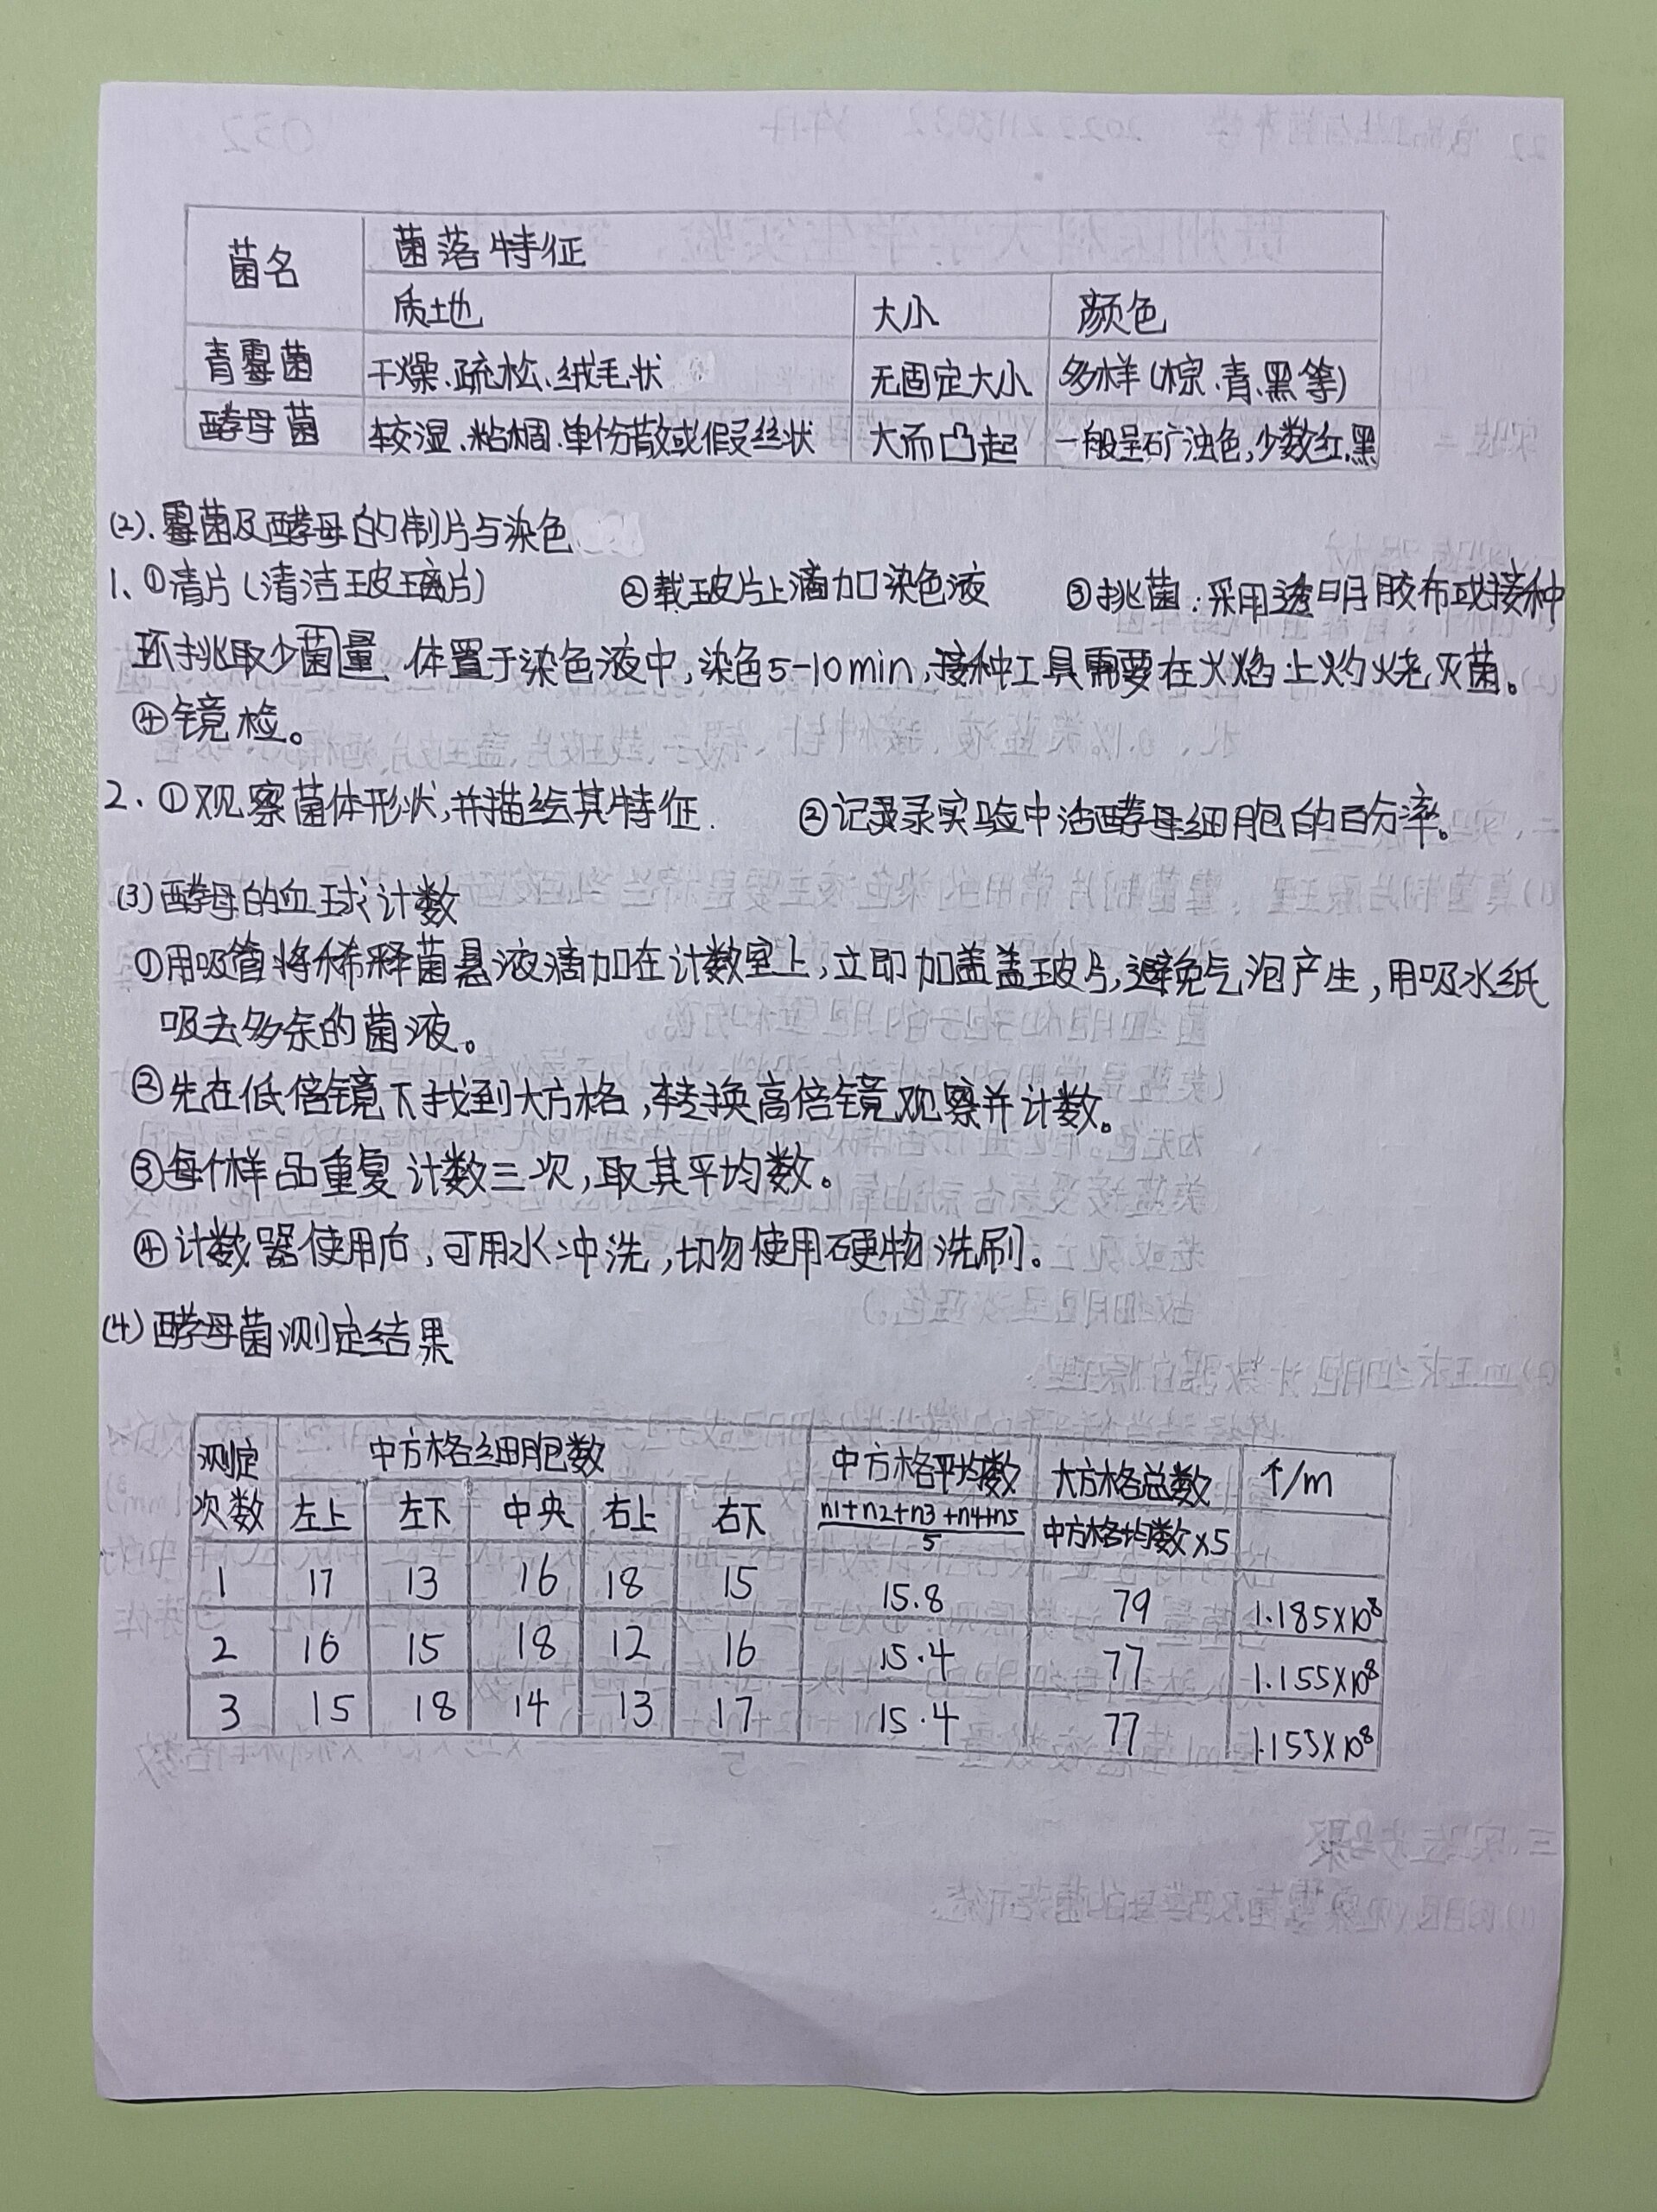 菌名 菌落特征
质地 大小 颜色
青霉菌 干燥、疏松、绒毛状 无固定大小 多样(棕、青、黑等)
酵母菌 较湿、粘稠、单份散或假丝状 大而凸起 一般呈矿浊色,少数红、黑
(2).霉菌及酵母的制片与染色
1、①清片(清洁玻璃片) ②载玻片上滴加染色液 ③挑菌:采用透明胶布或接种
环挑取少菌量 体置于染色液中,染色5-10min,接种工具需要在火焰上灼烧灭菌。
④镜检。
2、①观察菌体形状,并描绘其特征. ②记录录实验中活酵母细胞的百分率。
(3)酵母的血球计数
①用吸管将稀释菌悬液滴加在计数室上,立即加盖盖玻片,避免气泡产生,用吸水纸
吸去多余的菌液。
②先在低倍镜下找到大方格,转换高倍镜观察并计数。
③每个样品重复计数三次,取其平均数。
④计数器使用后,可用水冲洗,切勿使用硬物洗刷。
(4)酵母菌测定结果
测定次数 中方格细胞数 中方格平均数 大方格总数 个/m
左上 左下 中央 右上 右下 n1+n2+n3+n4+n5/5 中方格均数×5
1 17 13 16 18 15 15.8 79 1.185×10⁸
2 16 15 18 12 16 15.4 77 1.155×10⁸
3 15 18 14 13 17 15.4 77 1.155×10⁸